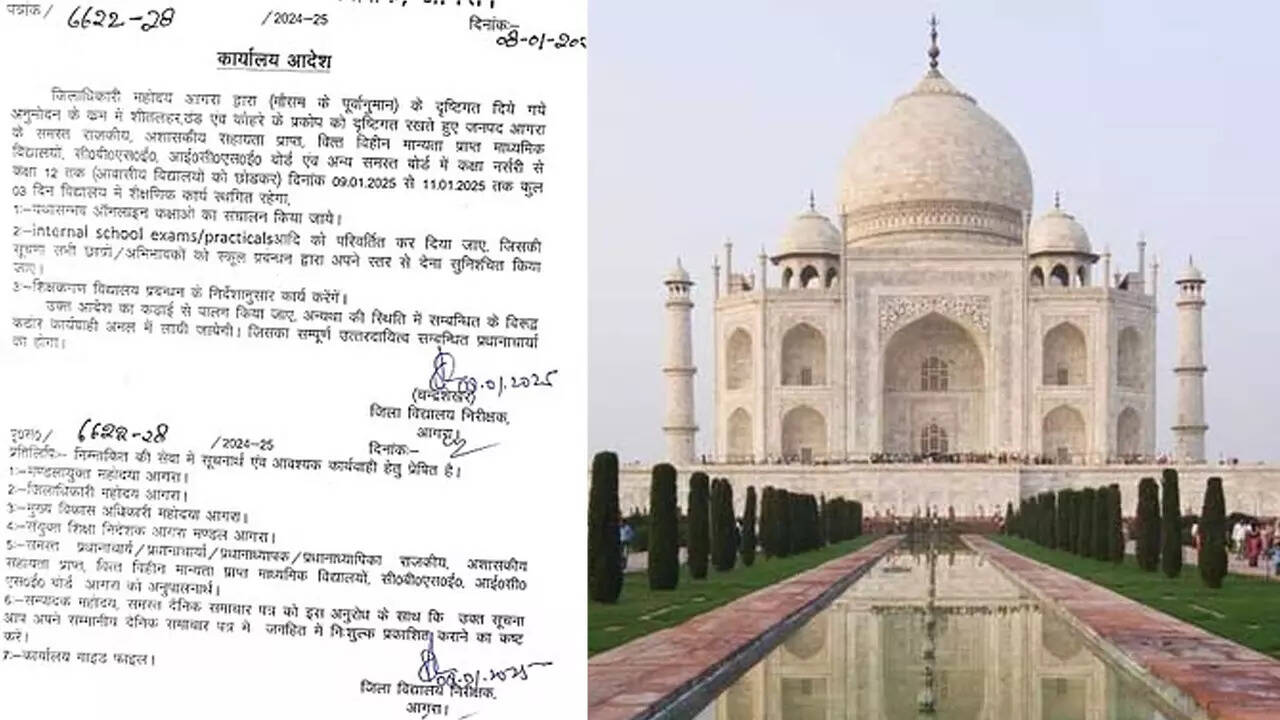 पत्रांक/ 6622-28 /2024-25 दिनांक:-
08-01-202
कार्यालय आदेश
जिलाधिकारी महोदय आगरा द्वारा (मौसम के पूर्वानुमान) के दृष्टिगत दिये गये
अनुमोदन के क्रम में शीतलहर,ठंड एवं कोहरे के प्रकोप को दृष्टिगत रखते हुए जनपद आगरा
के समस्त राजकीय, अशासकीय सहायता प्राप्त, वित्त विहीन मान्यता प्राप्त माध्यमिक
विद्यालयो, सी०बी०एस०ई०, आई०सी०एस०ई बोर्ड एंव अन्य समस्त बोर्ड में कक्षा नर्सरी से
कक्षा 12 तक (आवासीय विद्यालयो को छोडकर) दिनांक 09.01.2025 से 11.01.2025 तक कुल
03 दिन विद्यालय में शैक्षणिक कार्य स्थगित रहेगा,
1:-यथासम्भव ऑनलाइन कक्षाओं का संचालन किया जाये।
2:-internal school exams/practicalsआदि को परिवर्तित कर दिया जाए, जिसकी
सूचना सभी छात्रों/अभिभावकों को स्कूल प्रबंधन द्वारा अपने स्तर से देना सुनिश्चित किया
जाए।
3:-शिक्षकगण विद्यालय प्रबन्धन के निर्देशानुसार कार्य करेंगें।
उक्त आदेश का कडाई से पालन किया जाए, अन्यथा की स्थिति में सम्बन्धित के विरूद्ध
कठोर कार्यवाही अमल में लायी जायेगी। जिसका सम्पूर्ण उत्तरदायित्व सम्बन्धित प्रधानाचार्य
का होगा।
08.01.2025
(चन्द्रशेखर)
जिला विद्यालय निरीक्षक,
आगरा।
पृ०सं०/ 6622-28 /2024-25 दिनांक:-
प्रतिलिपि:- निम्नांकित की सेवा में सूचनार्थ एंव आवश्यक कार्यवाही हेतु प्रेषित है।
1:-मण्डलायुक्त महोदया आगरा।
2:-जिलाधिकारी महोदय आगरा।
3:-मुख्य विकास अधिकारी महोदया आगरा।
4:-संयुक्त शिक्षा निदेशक आगरा मण्डल आगरा।
5:-समस्त प्रधानाचार्य/प्रधानाचार्या/प्रधानाध्यापक/प्रधानाध्यापिका राजकीय, अशासकीय
सहायता प्राप्त, वित्त विहीन मान्यता प्राप्त माध्यमिक विद्यालयो, सी०बी०एस०ई०, आई०सी०
एस०ई० बोर्ड आगरा को अनुपालनार्थ।
6:-सम्पादक महोदय, समस्त दैनिक समाचार पत्र को इस अनुरोध के साथ कि उक्त सूचना
आप अपने सम्मानीय दैनिक समाचार पत्र में जनहित में निःशुल्क प्रकाशित कराने का कष्ट
करें।
7:-कार्यालय गाइड फाइल।
08.01.2025
जिला विद्यालय निरीक्षक,
आगरा।